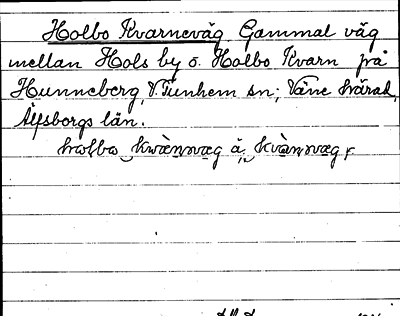 Holbo Kvarneväg Gammal väg
mellan Hols by o. Holbo Kvarn på
Hunneberg, V. Tunhem sn; Väne härad,
Älfsborgs län.